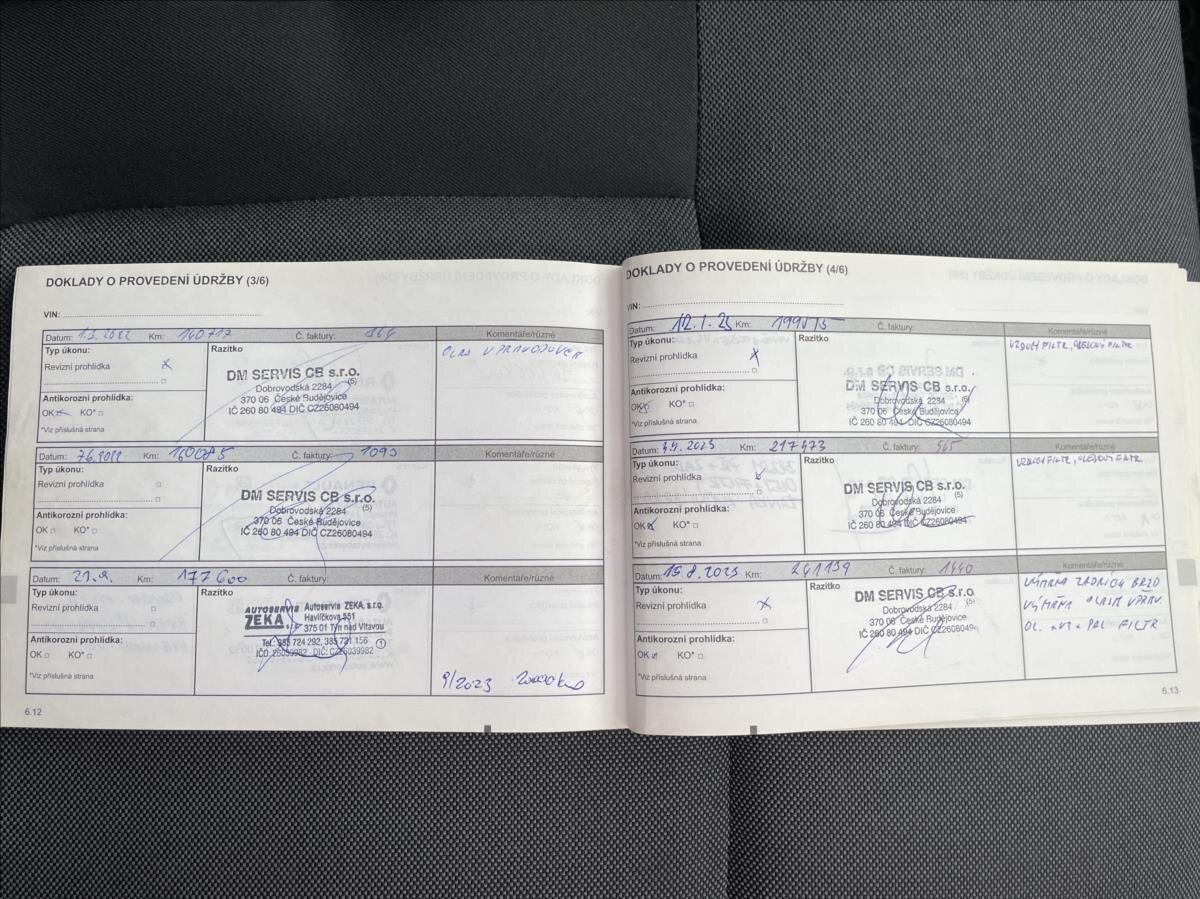 DOKLADY O PROVEDENÍ ÚDRŽBY (3/6)
VIN:
Datum: 1.3.2022 Km: 140717 Č. faktury: 344
Komentáře/různé
Typ úkonu:
Revizní prohlídka x
Antikorozní prohlídka:
OK KO*
*Viz příslušná strana
Razítko
DM SERVIS CB s.r.o.
Dobrovodská 2284 (5)
370 06 České Budějovice
IČ 260 80 494 DIČ CZ26080494
OLEJ V PŘEVODOVCE
Datum: 7.6.2022 Km: 160085 Č. faktury: 1093
Komentáře/různé
Typ úkonu:
Revizní prohlídka
Antikorozní prohlídka:
OK KO*
*Viz příslušná strana
Razítko
DM SERVIS CB s.r.o.
Dobrovodská 2284 (5)
370 06 České Budějovice
IČ 260 80 494 DIČ CZ26080494
Datum: 21.9. Km: 177600 Č. faktury:
Komentáře/různé
Typ úkonu:
Revizní prohlídka
Antikorozní prohlídka:
OK KO*
*Viz příslušná strana
Razítko
AUTOSERVIS ZEKA s.r.o.
Autoservis ZEKA, s.r.o.
Havlíčkova 551
375 01 Týn nad Vltavou
Tel.: 385 724 292, 385 721 156 1
IČO: 26039982 DIČ: CZ26039982
9/2023 200000 km
6.12
DOKLADY O PROVEDENÍ ÚDRŽBY (4/6)
VIN:
Datum: 12.1.23 Km: Č. faktury:
Komentáře/různé
Typ úkonu:
Revizní prohlídka x
Antikorozní prohlídka:
OK x KO*
*Viz příslušná strana
Razítko
DM SERVIS CB s.r.o.
Dobrovodská 2284 (5)
370 06 České Budějovice
IČ 260 80 494 DIČ CZ26080494
VZDUCH FILTR, OLEJOVÝ FILTR
Datum: 2023 Km: 217473 Č. faktury: 565
Komentáře/různé
Typ úkonu:
Revizní prohlídka x
Antikorozní prohlídka:
OK x KO*
*Viz příslušná strana
Razítko
DM SERVIS CB s.r.o.
Dobrovodská 2284 (5)
370 06 České Budějovice
IČ 260 80 494 DIČ CZ26080494
VZDUCH FILTR, OLEJOVÝ FILTR
Datum: 15.8.2023 Km: 241139 Č. faktury: 1440
Komentáře/různé
Typ úkonu:
Revizní prohlídka x
Antikorozní prohlídka:
OK x KO*
*Viz příslušná strana
Razítko
DM SERVIS CB s.r.o.
Dobrovodská 2284
370 06 České Budějovice
IČ 260 80 494 DIČ CZ26080494
VÝMĚNA ZADNÍCH BRZD
VÝMĚNA OLEJE V PŘEV.
OL. + VZ + PAL FILTR
6.13